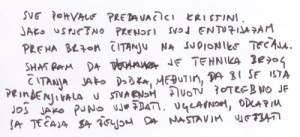 SVE POHVALE PREDAVAČICI KRISTINI.
JAKO USPJEŠNO PRENOSI SVOJ ENTUZIJAZAM
PREMA BRZOM ČITANJU NA SUDIONIKE TEČAJA.
SMATRAM DA JE TEHNIKA BRZOG
ČITANJA JAKO DOBRA, MEĐUTIM, DA BI SE ISTA
PRIMJENJIVALA U STVARNOM ŽIVOTU POTREBNO JE
JOŠ JAKO PUNO VJEŽBATI. UGLAVNOM, ODLAZIM
SA TEČAJA SA ŽELJOM DA NASTAVIM VJEŽBATI